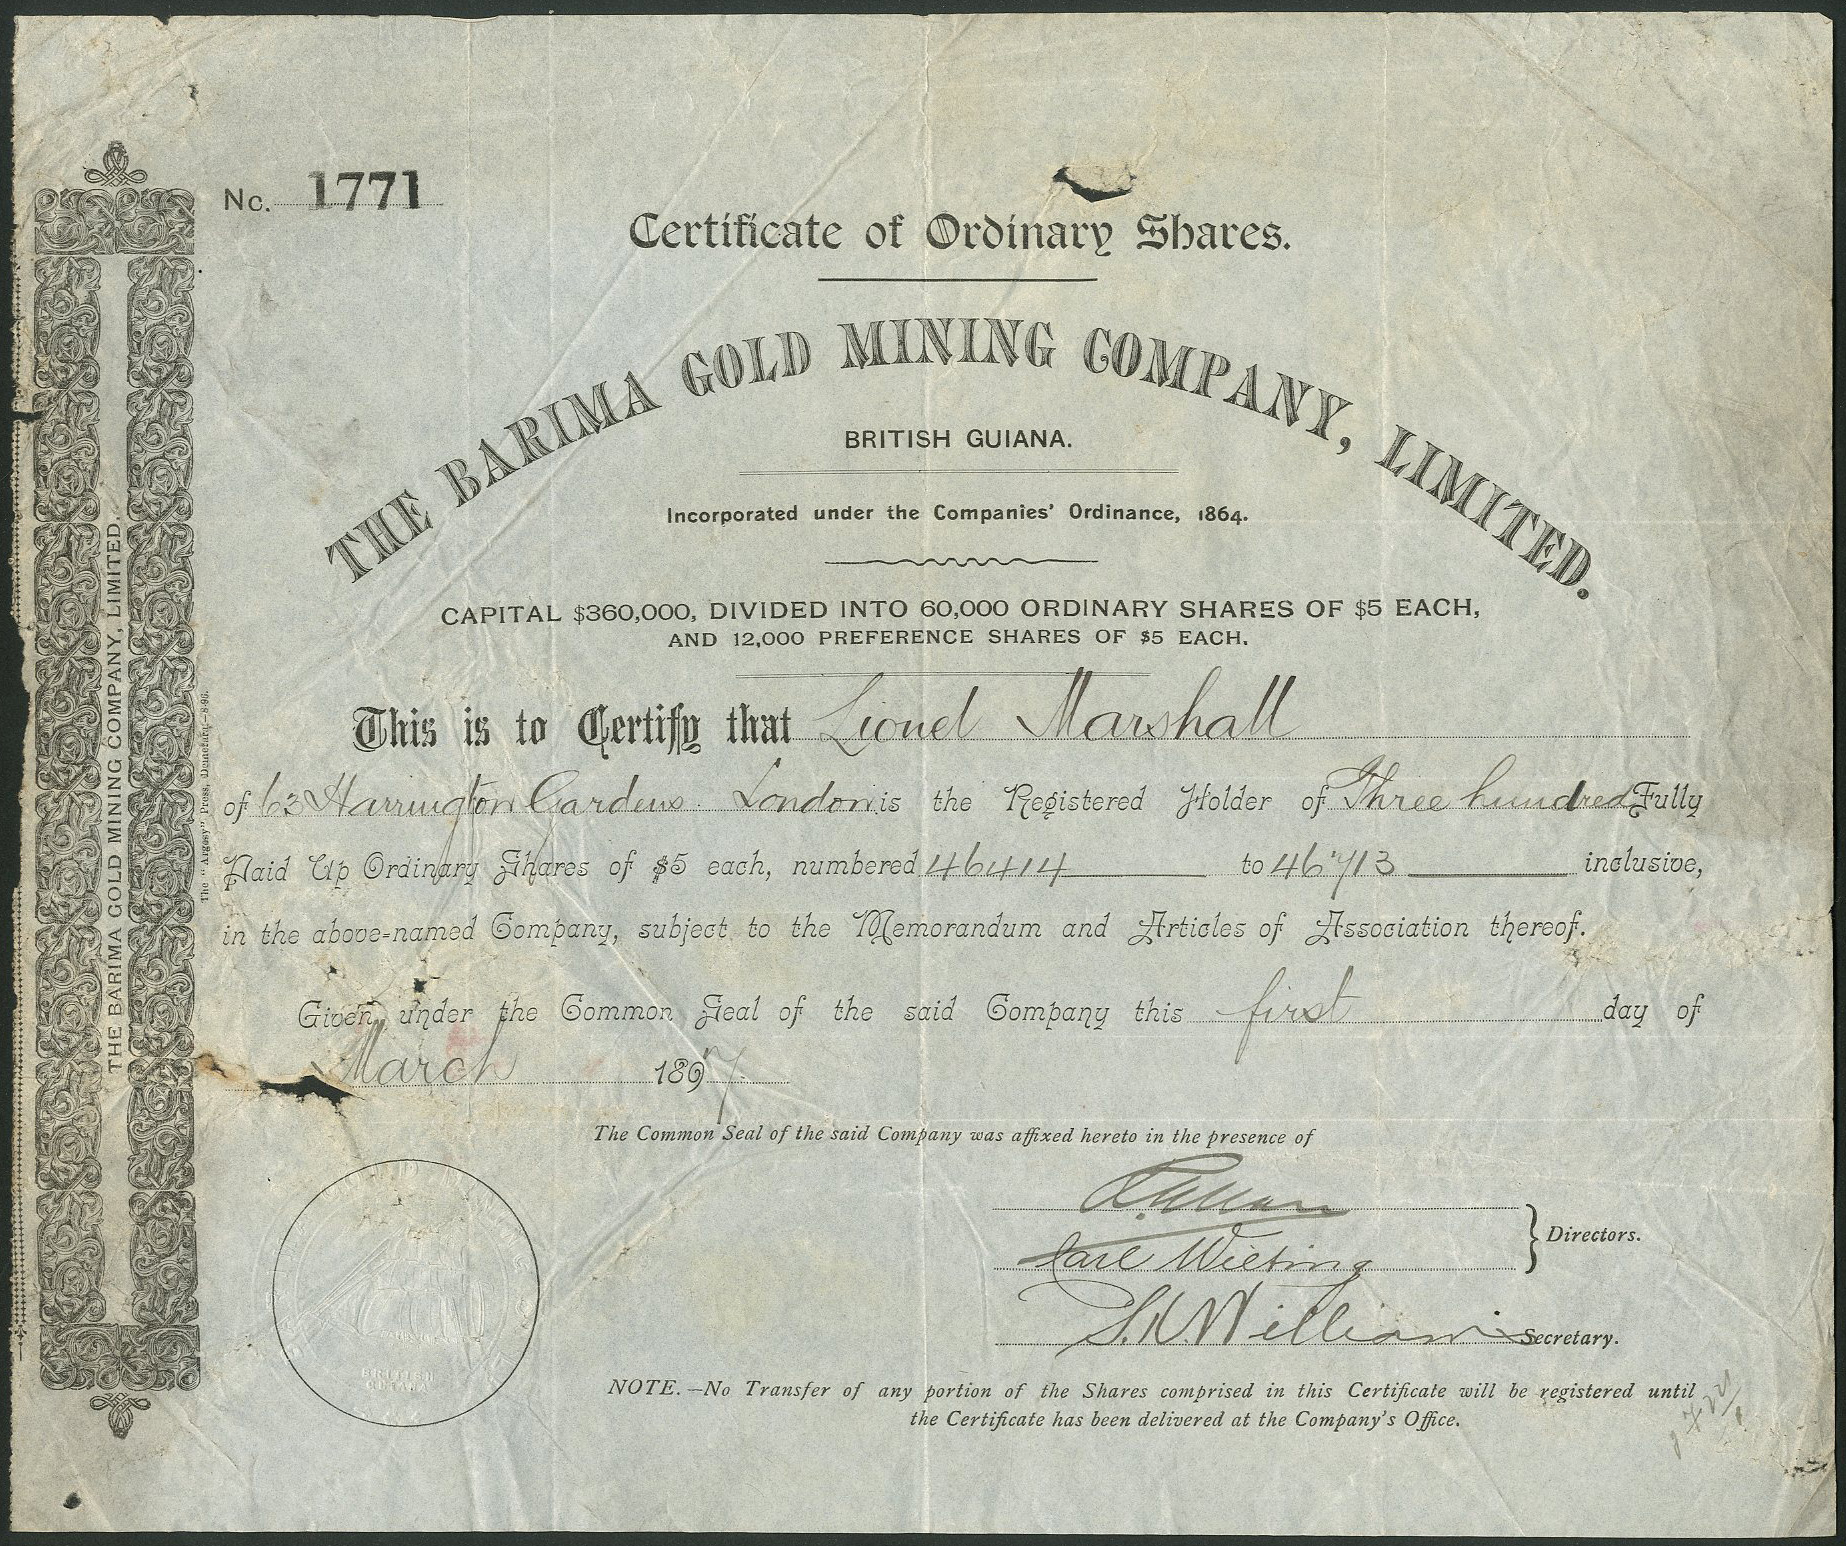 No. 1771
Certificate of Ordinary Shares.
THE BARIMA GOLD MINING COMPANY, LIMITED.
BRITISH GUIANA.
Incorporated under the Companies' Ordinance, 1864.
CAPITAL $360,000, DIVIDED INTO 60,000 ORDINARY SHARES OF $5 EACH,
AND 12,000 PREFERENCE SHARES OF $5 EACH.
This is to Certify that Lionel Marshall
of 63 Harrington Gardens London is the Registered Holder of Three hundred Fully
Paid Up Ordinary Shares of $5 each, numbered 46414 to 46713 inclusive,
in the above-named Company, subject to the Memorandum and Articles of Association thereof.
Given under the Common Seal of the said Company this first day of
March 1897
The Common Seal of the said Company was affixed hereto in the presence of
Carl Wieting
Directors.
Williams
Secretary.
NOTE.—No Transfer of any portion of the Shares comprised in this Certificate will be registered until
the Certificate has been delivered at the Company's Office.
THE BARIMA GOLD MINING COMPANY, LIMITED.
The "Argosy" Press, Demerara—8-96.
BRITISH
GUIANA